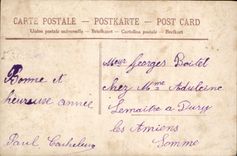 CARTE POSTALE — POSTKARTE — POST CARD
Union postale universelle — Briefkaart — Cartolina postale — Brefkort
Bonne et
heureuse année
Paul
Georges Boilet
chez Mme
Lemaitre à Dury
les Amiens
Somme